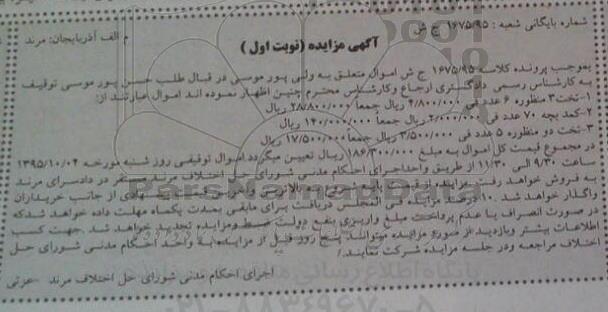 شماره بایگانی شعبه : ۱۶۷۵/۹۵ ج ش
م الف آذربایجان: مرند
آگهی مزایده (نوبت اول)
بموجب پرونده کلاسه ۱۶۷۵/۹۵ ج ش اموال متعلق به ولبی پور موسی در قبال طلب حسن پور موسی توقیف
به کارشناس رسمی دادگستری ارجاع وکارشناس محترم چنین اظهار نموده اند اموال عبارتند از:
۱-تخت ۳ منظوره ۶ عدد فی ۴/۸۰۰/۰۰۰ ریال جمعا ۲۸/۸۰۰/۰۰۰ ریال
۲-کمد بچه ۷۰ عدد فی ۲/۰۰۰/۰۰۰ ریال جمعا ۱۴۰/۰۰۰/۰۰۰ ریال
۳-تخت دو منظوره ۵ عدد فی ۳/۵۰۰/۰۰۰ ریال جمعا ۱۷/۵۰۰/۰۰۰ ریال
در مجموع قیمت کل اموال به مبلغ ۱۸۶/۳۰۰/۰۰۰ ریال تعیین میگردد اموال توقیفی روز شنبه مورخه ۱۳۹۵/۱۰/۰۴
ساعت ۹/۳۰ الی ۱۱/۳۰ از طریق واحد اجرای احکام مدنی شورای حل اختلاف مرند مستقر در دادسرای مرند
به فروش خواهد رفت مزایده از قیمت پایه شروع و به بالاترین قیمت پیشنهادی از جانب خریداران
واگذار خواهد شد .۱۰ درصد مزایده فی المجلس دریافت برای مابقی بمدت یکماه مهلت داده خواهد شدکه
در صورت انصراف یا عدم پرداخت مبلغ واریزی بنفع دولت ضبط ومزایده تجدید خواهد شد .جهت کسب
اطلاعات بیشتر وبازدید از موضوع مزایده میتوانند پنج روز قبل از مزایده به واحد احکام مدنی شورای حل
اختلاف مراجعه ودر جلسه مزایده شرکت نمایند./
اجرای احکام مدنی شورای حل اختلاف مرند -عزتی
پایگاه اطلاع رسانی
۰۲۱-۸۸۳۴۹۶۷۰-۵